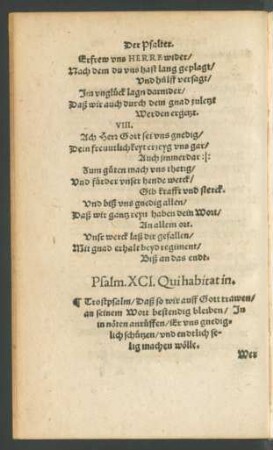 Der Psalter.
Erfrew vns HERR wider/
Nach dem du vns hast lang geplagt/
Vnd hülff versagt/
Im vnglück lagn darnider/
Daß wir auch durch dein gnad zuletzt
Werden ergetzt.
VIII.
Ach Herr Gott sei vns gnedig/
Dein freuntlichkeyt erzeyg vns gar/
Auch jmmerdar :|:
Zum gůten mach vns thetig/
Vnd fürder vnser hende werck/
Gib krafft vnd sterck.
Vnd biß vns gnedig allen/
Daß wir gantz reyn haben dein Wort/
An allem ort.
Vnsr werck laß dir gefallen/
Mit gnad erhalt beyd regiment/
Biß an das endt.
Psalm. XCI. Qui habitat in.
¶ Trostpsalm/ Daß so wir auff Gott trawen/
an seinem Wort bestendig bleiben/ In
in nöten anrüffen/ Er vns gnedig-
lich schützen/ vnd endtlich se-
lig machen wölle.
Wer